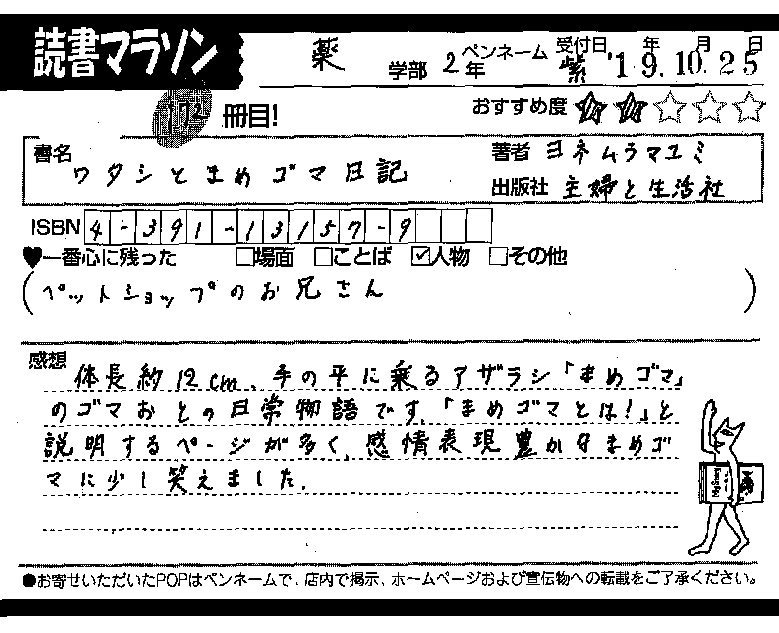 読書マラソン
薬 学部 2年 ペンネーム 紫 受付日 '19年.10月.25日
172 冊目! おすすめ度 ★★☆☆☆
書名 ワタシとまめゴマ日記
著者 ヨネムラマユミ
出版社 主婦と生活社
ISBN 4-391-13157-9
♥一番心に残った □場面 □ことば ☑人物 □その他
(ペットショップのお兄さん)
感想
体長約12cm、手の平に乗るアザラシ「まめゴマ」
のゴマおとの日常物語です。「まめゴマとは!」と
説明するページが多く、感情表現豊かなまめゴ
マに少し笑えました。
●お寄せいただいたPOPはペンネームで、店内で掲示、ホームページおよび宣伝物への転載をご了承ください。